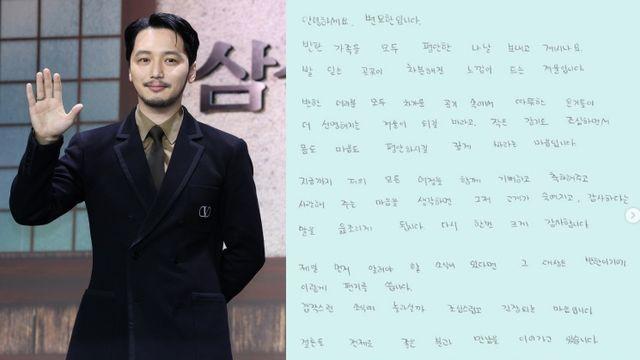 삼
안녕하세요, 변요한입니다.
반한 가족들 모두 평안한 나날 보내고 계시나요.
발 닿는 곳곳이 차분해진 느낌이 드는 겨울입니다
반한 여러분 모두 차가운 공기 속에서 따뜻한 온기들이
더 선명해지는 겨울이 되길 바라고, 작은 감기도 조심하면서
몸도 마음도 평안하시길 깊게 바라는 마음입니다.
지금까지 저의 모든 여정을 함께 기뻐하고 축하해주고
사랑해 주는 마음을 생각하면 그저 고개가 숙여지고, 감사하다는
말을 읊조리게 됩니다. 다시 한번 크게 감사합니다
제일 먼저 알려야 할 소식이 있다면 그 대상은 반한이기에
이렇게 편지를 씁니다.
갑작스런 소식에 놀라실까 조심스럽고 긴장되는 마음입니다
결혼을 전제로 좋은 분과 만남을 이어가고 있습니다.